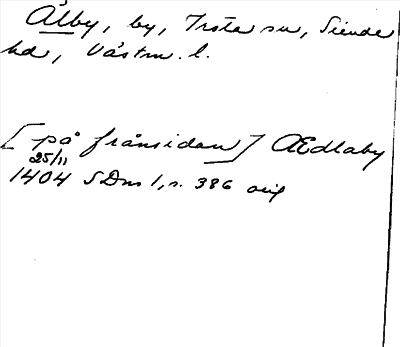 Älby, by, Irsta sn, Siende
hd, Västm. l.
[på frånsidan] Ædlaby
25/11
1404 SDns 1, s. 386 orig